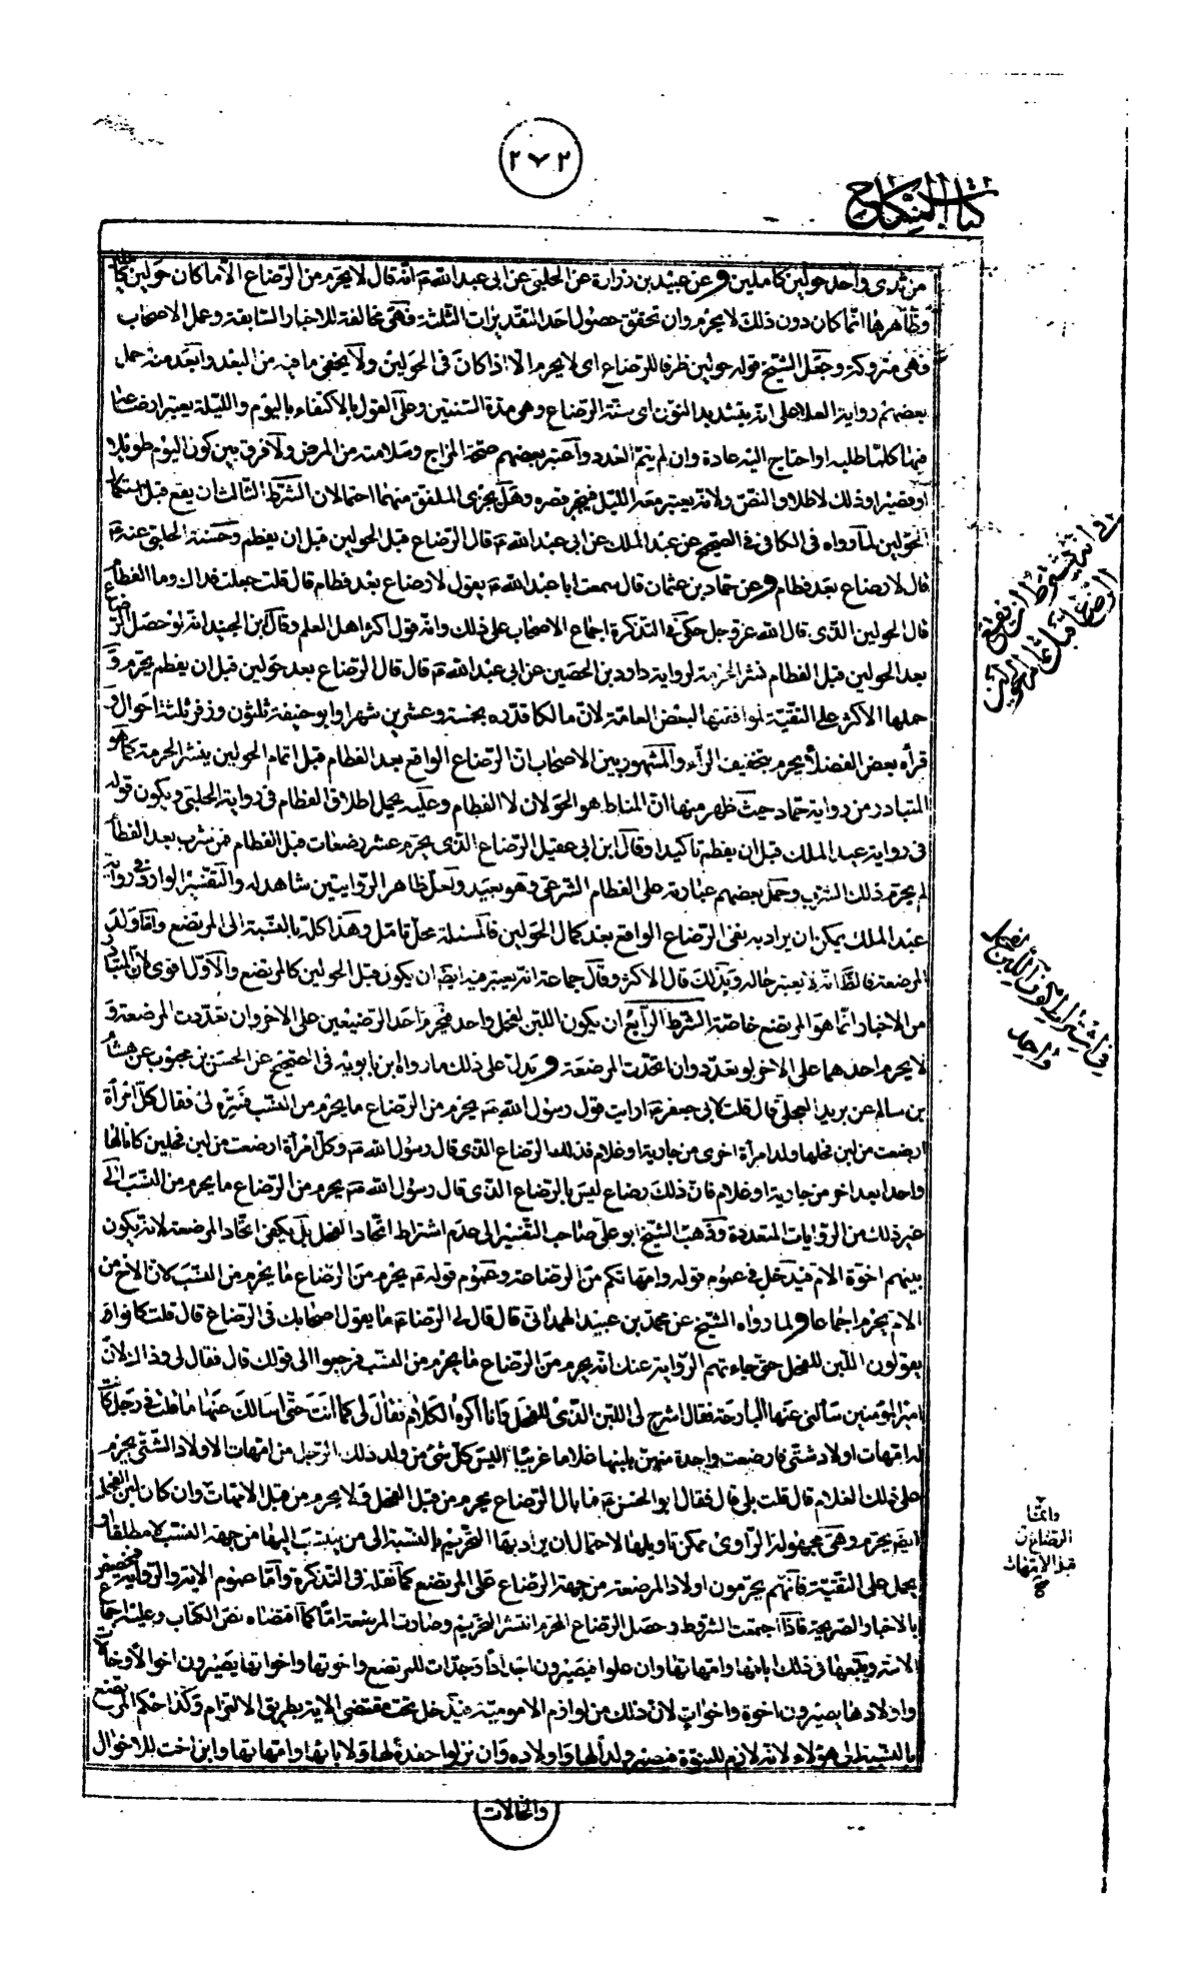 ٢٧٢
كتاب النكاح
من ثدى واحد حولين كاملين وعن عبيد بن زرارة عن الحلبى عن ابى عبد الله ع انه قال لا يحرم من الرضاع الا ما كان حولين كاملين
وظاهرها انما كان دون ذلك لا يحرم وان تحقق حصول احد التقديرات الثلثة فهى مخالفة للاخبار السابقة وعمل الاصحاب
فهى متروكة وجعل الشيخ قوله حولين ظرفا للرضاع اى لا يحرم الا اذا كان فى الحولين ولا يخفى ما فيه من البعد وابعد منه حمل
بعضهم رواية العلا على انه بتشديد النون اى سنة الرضاع وهى مدة السنتين وعلى القول بالاكتفاء باليوم والليلة يعتبر ارضاعه
فيها كلما طلبه او احتاج اليه عادة وان لم يتم العدد واعتبر بعضهم صحة المزاج وسلامته من المرض ولا فرق بين كون اليوم طويلا
او قصيرا وذلك لاطلاق النص ولانه يعتبر معه الليل فيجبر قصره وهل يجزى الملفق منهما احتمالان الشرط الثالث ان يقع قبل استكمال
الحولين لما رواه فى الكافى فى الصحيح عن عبد الملك عن ابى عبد الله ع قال الرضاع قبل الحولين قبل ان يفطم وحسنة الحلبى عنه ع
قال لا رضاع بعد فطام وعن حماد بن عثمان قال سمعت ابا عبد الله ع يقول لا رضاع بعد فطام قال قلت جعلت فداك وما الفطام
قال الحولين الذى قال الله عز وجل حكى فى التذكرة اجماع الاصحاب على ذلك وانه قول اكثر اهل العلم وقال ابن الجنيد انه لو حصل الرضاع
بعد الحولين قبل الفطام نشر الحرمة لرواية داود بن الحصين عن ابى عبد الله ع قال قال الرضاع بعد حولين قبل ان يفطم يحرم و
حملها الاكثر على التقية لموافقتها لبعض العامة لان مالكا قدره بخمسة وعشرين شهرا وابو حنيفة ثلثون وزفر بثلثة احوال و
قرأه بعض الفضلا يحرم بتخفيف الراء والمشهور بين الاصحاب ان الرضاع الواقع بعد الفطام قبل اتمام الحولين ينشر الحرمة كما هو
المتبادر من رواية حماد حيث ظهر منها ان المناط هو الحولان لا الفطام وعليه يحمل اطلاق الفطام فى رواية الحلبى ويكون قوله
فى رواية عبد الملك قبل ان يفطم تاكيدا وقال ابن ابى عقيل الرضاع الذى يحرم عشر رضعات قبل الفطام فمن شرب بعد الفطام
لم يحرم ذلك الشرب وحمل بعضهم عبارته على الفطام الشرعى وهو بعيد ولعل ظاهر الروايتين شاهد له والتفسير الوارد فى رواية
عبد الملك يمكن ان يراد به نفى الرضاع الواقع بعد كمال الحولين فالمسئلة محل تامل وهذا كله بالنسبة الى المرتضع واما ولد
المرضعة فالظ انه لا يعتبر حاله وبذلك قال الاكثر وقال جماعة انه يعتبر فيه ايضا ان يكون قبل الحولين كالمرتضع والاول اقوى لان المتبادر
من الاخبار انما هو المرتضع خاصة الشرط الرابع ان يكون اللبن لفحل واحد فيحرم احد الرضيعين على الاخر وان تعددت المرضعة و
لا يحرم احدهما على الاخر لو تعدد وان اتحدت المرضعة ويدل على ذلك ما رواه ابن بابويه فى الصحيح عن الحسن بن محبوب عن هشام
بن سالم عن بريد العجلى قال قلت لابى جعفر ع ارايت قول رسول الله ص يحرم من الرضاع ما يحرم من النسب فسره لى فقال كل امرأة
ارضعت من لبن فحلها ولد امرأة اخرى من جارية او غلام فذلك الرضاع الذى قال رسول الله ص وكل امرأة ارضعت من لبن فحلين كانا لها
واحدا بعد اخر من جارية او غلام فان ذلك رضاع ليس بالرضاع الذى قال رسول الله ص يحرم من الرضاع ما يحرم من النسب الى
غير ذلك من الروايات المتعددة وذهب الشيخ ابو على صاحب التفسير الى عدم اشتراط اتحاد الفحل بل يكفى اتحاد المرضعة لانه يكون
بينهم اخوة الام فيدخل فى عموم قوله وامهاتكم من الرضاعة وعموم قوله ع يحرم من الرضاع ما يحرم من النسب لان الاخ من
الام يحرم اجماعا ولما رواه الشيخ عن محمد بن عبيد الهمدانى قال قال لى الرضا ع ما يقول اصحابك فى الرضاع قال قلت كانوا
يقولون اللبن للفحل حتى جاءتهم الرواية عنك انه يحرم من الرضاع ما يحرم من النسب فرجعوا الى قولك قال فقال لى وذاك لان
امير المؤمنين سألنى عنها البارحة فقال اشرح لى اللبن الذى للفحل وانا اكره الكلام فقال لى كما انت حتى اسالك عنها ما قلت فى رجل كانت
له امهات اولاد شتى فارضعت واحدة منهن بلبنها غلاما غريبا اليس كل شئ من ولد ذلك الرجل من امهات الاولاد الشتى يحرم
على ذلك الغلام قال قلت بلى قال فقال ابو الحسن ع فما بال الرضاع يحرم من قبل الفحل ولا يحرم من قبل الامهات وان كان لبن الفحل
ايضا يحرم وهى مجهولة الراوى ممكن تاويلها لاحتمال ان يراد بها التحريم بالنسبة الى من ينتسب اليها من جهة النسب لا مطلقا او
يحمل على التقية فانهم يحرمون اولاد المرضعة من جهة الرضاع على المرتضع كما نقله فى التذكرة واما عموم الاية والرواية فمخصص
بالاخبار الصريحة فاذا اجتمعت الشروط وحصل الرضاع المحرم انتشر التحريم وصارت المرضعة اما كما اقتضاه نص الكتاب وعليه اجماع
الامة ويتبعها فى ذلك اباءها وامهاتها وان علوا فيصيرون اجدادا وجدات للمرتضع واخوتها واخواتها يصيرون اخوالا وخالات
واولادها يصيرون اخوة واخوات لان ذلك من لوازم الامومية فيدخل تحت مقتضى الاية بطريق الالتزام وكذا حكم المرتضع
بالنسبة الى هؤلاء لانه لازم للبنوة فيصير ولدا لها واولاده وان نزلوا حفدة لها ولابائها وامهاتها وابن اخت للاخوال
والخالات
فى انه يشترط ان يقع الرضاع قبل اكمال الحولين
فى اشتراط كون اللبن لفحل واحد
وانما
الرضاع من
قبل الامهات